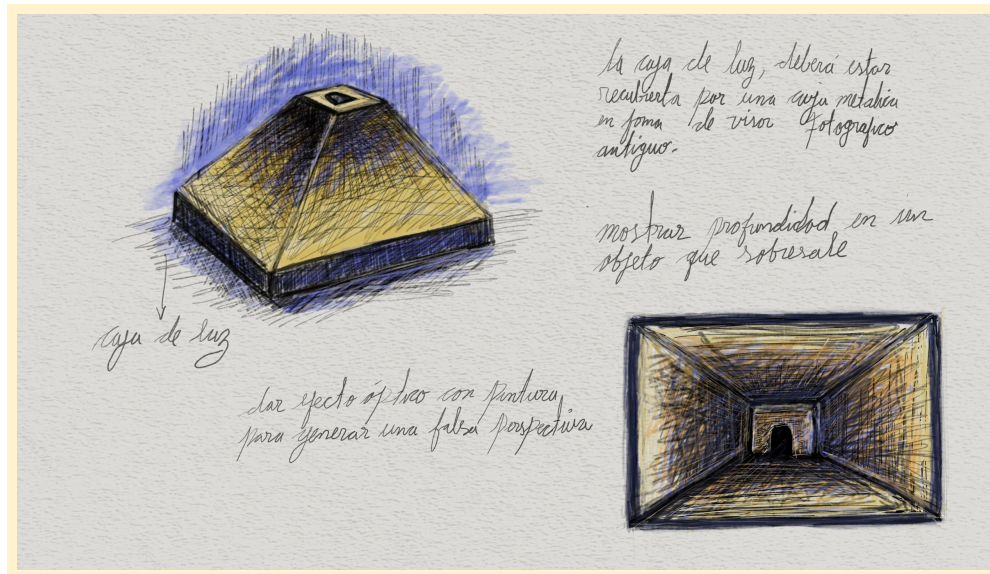 la caja de luz, deberá estar
recubierta por una caja metalica
en foma de visor Fotografico
antiguo.
mostrar profundidad en un
objeto que sobresale
caja de luz
dar efecto óptico con pintura
para generar una falsa perspectiva